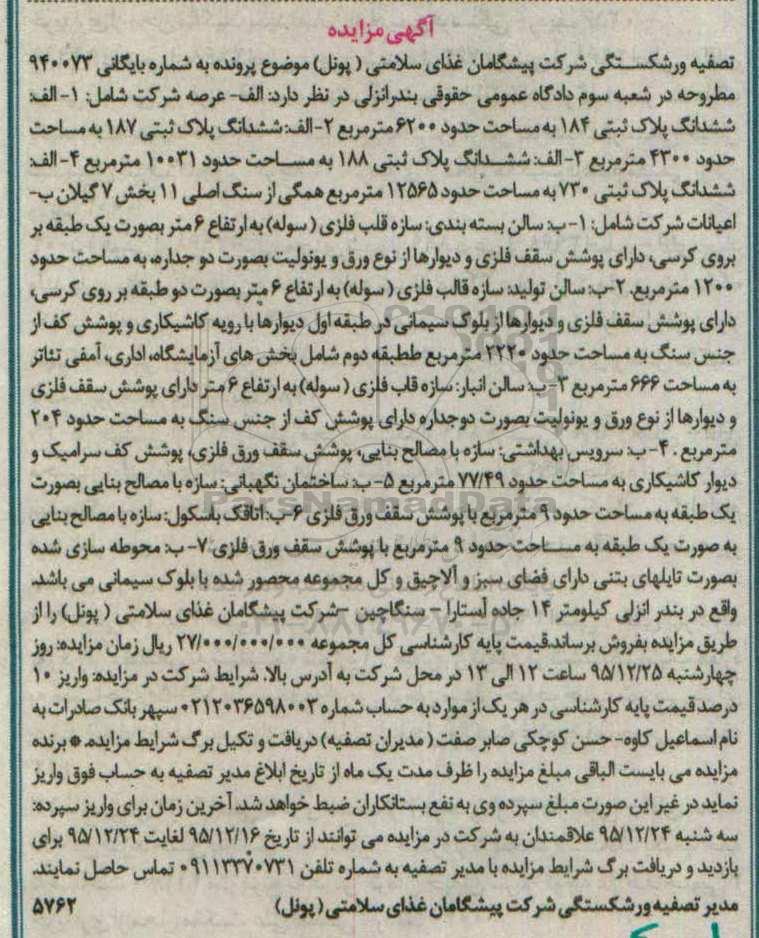 آگهی مزایده
تصفیه ورشکستگی شرکت پیشگامان غذای سلامتی ( پونل) موضوع پرونده به شماره بایگانی ۹۴۰۰۷۳
مطروحه در شعبه سوم دادگاه عمومی حقوقی بندرانزلی در نظر دارد: الف- عرصه شرکت شامل: ۱- الف:
ششدانگ پلاک ثبتی ۱۸۴ به مساحت حدود ۶۲۰۰ مترمربع ۲-الف: ششدانگ پلاک ثبتی ۱۸۷ به مساحت
حدود ۴۳۰۰ مترمربع ۳- الف: ششدانگ پلاک ثبتی ۱۸۸ به مساحت حدود ۱۰۰۳۱ مترمربع ۴- الف:
ششدانگ پلاک ثبتی ۷۳۰ به مساحت حدود ۱۲۵۶۵ مترمربع همگی از سنگ اصلی ۱۱ بخش ۷ گیلان ب-
اعیانات شرکت شامل: ۱- ب: سالن بسته بندی: سازه قلب فلزی ( سوله) به ارتفاع ۶ متر بصورت یک طبقه بر
بروی کرسی، دارای پوشش سقف فلزی و دیوارها از نوع ورق و یونولیت بصورت دو جداره، به مساحت حدود
۱۲۰۰ مترمربع. ۲-ب: سالن تولید: سازه قالب فلزی ( سوله) به ارتفاع ۶ متر بصورت دو طبقه بر روی کرسی،
دارای پوشش سقف فلزی و دیوارها از بلوک سیمانی در طبقه اول دیوارها با رویه کاشیکاری و پوشش کف از
جنس سنگ به مساحت حدود ۲۲۲۰ مترمربع ططبقه دوم شامل بخش های آزمایشگاه، اداری، آمفی تئاتر
به مساحت ۶۶۶ مترمربع ۳- ب: سالن انبار: سازه قاب فلزی ( سوله) به ارتفاع ۶ متر دارای پوشش سقف فلزی
و دیوارها از نوع ورق و یونولیت بصورت دوجداره دارای پوشش کف از جنس سنگ به مساحت حدود ۲۰۴
مترمربع . ۴- ب: سرویس بهداشتی: سازه با مصالح بنایی، پوشش سقف ورق فلزی، پوشش کف سرامیک و
دیوار کاشیکاری به مساحت حدود ۷۷/۴۹ مترمربع ۵- ب: ساختمان نگهبانی: سازه با مصالح بنایی بصورت
یک طبقه به مساحت حدود ۹ مترمربع با پوشش سقف ورق فلزی ۶-ب: اتاقک باسکول: سازه با مصالح بنایی
به صورت یک طبقه به مساحت حدود ۹ مترمربع با پوشش سقف ورق فلزی ۷- ب: محوطه سازی شده
بصورت تایلهای بتنی دارای فضای سبز و آلاچیق و کل مجموعه محصور شده با بلوک سیمانی می باشد.
واقع در بندر انزلی کیلومتر ۱۴ جاده آستارا - سنگاچین -شرکت پیشگامان غذای سلامتی ( پونل) را از
طریق مزایده بفروش برساند.قیمت پایه کارشناسی کل مجموعه ۲۷/۰۰۰/۰۰۰/۰۰۰ ریال زمان مزایده: روز
چهارشنبه ۹۵/۱۲/۲۵ ساعت ۱۲ الی ۱۳ در محل شرکت به آدرس بالا. شرایط شرکت در مزایده: واریز ۱۰
درصد قیمت پایه کارشناسی در هر یک از موارد به حساب شماره ۰۲۱۲۰۳۶۵۹۸۰۰۳ سپهر بانک صادرات به
نام اسماعیل کاوه- حسن کوچکی صابر صفت ( مدیران تصفیه) دریافت و تکیل برگ شرایط مزایده. * برنده
مزایده می بایست الباقی مبلغ مزایده را ظرف مدت یک ماه از تاریخ ابلاغ مدیر تصفیه به حساب فوق واریز
نماید در غیر این صورت مبلغ سپرده وی به نفع بستانکاران ضبط خواهد شد. آخرین زمان برای واریز سپرده:
سه شنبه ۹۵/۱۲/۲۴ علاقمندان به شرکت در مزایده می توانند از تاریخ ۹۵/۱۲/۱۶ لغایت ۹۵/۱۲/۲۴ برای
بازدید و دریافت برگ شرایط مزایده با مدیر تصفیه به شماره تلفن ۰۹۱۱۳۳۷۰۷۳۱ تماس حاصل نمایند.
مدیر تصفیه ورشکستگی شرکت پیشگامان غذای سلامتی ( پونل) ۵۷۶۲
ParsNamadData